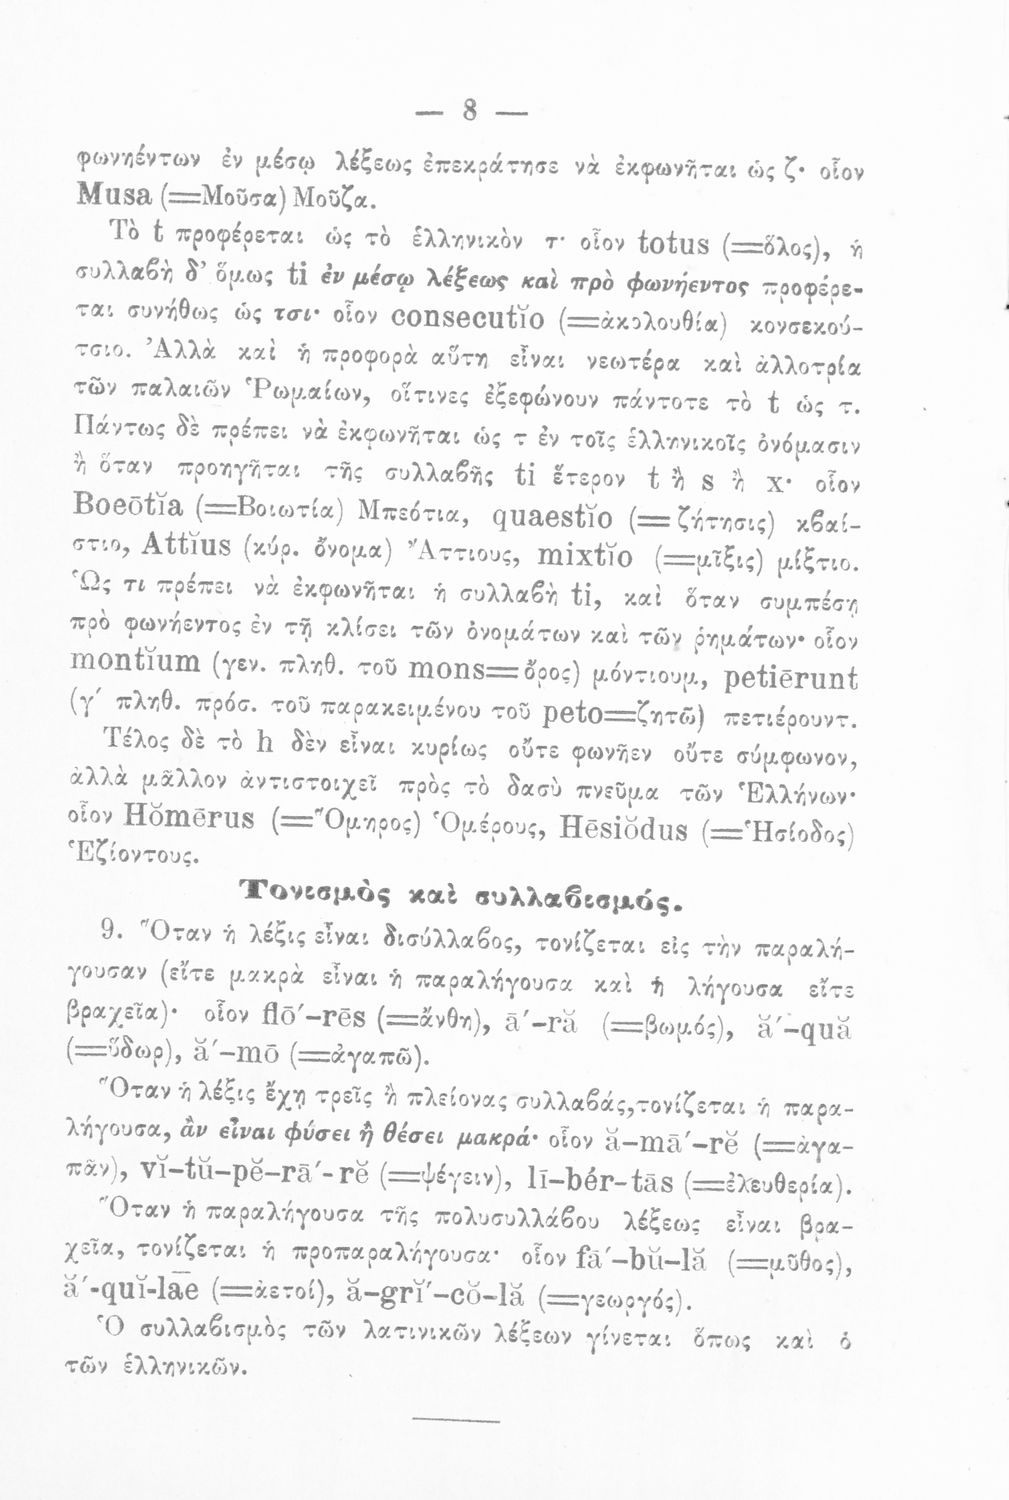 — 8 —
φωνηέντων ἐν μέσῳ λέξεως ἐπεκράτησε νὰ ἐκφωνῆται ὡς ζ· οἷον
Musa (=Μοῦσα) Μοῦζα.
Τὸ t προφέρεται ὡς τὸ ἑλληνικὸν τ· οἷον totus (=ὅλος), ἡ
συλλαβὴ δ' ὅμως ti ἐν μέσῳ λέξεως καὶ πρὸ φωνήεντος προφέρε-
ται συνήθως ὡς τσι· οἷον consecutĭo (=ἀκολουθία) κονσεκού-
τσιο. Ἀλλὰ καὶ ἡ προφορὰ αὕτη εἶναι νεωτέρα καὶ ἀλλοτρία
τῶν παλαιῶν Ῥωμαίων, οἵτινες ἐξεφώνουν πάντοτε τὸ t ὡς τ.
Πάντως δὲ πρέπει νὰ ἐκφωνῆται ὡς τ ἐν τοῖς ἑλληνικοῖς ὀνόμασιν
ἢ ὅταν προηγῆται τῆς συλλαβῆς ti ἕτερον t ἢ s ἢ x· οἷον
Boeōtĭa (=Βοιωτία) Μπεότια, quaestĭo (=ζήτησις) κβαί-
στιο, Attĭus (κύρ. ὄνομα) Ἄττιους, mixtĭo (=μῖξις) μίξτιο.
Ὡς τι πρέπει νὰ ἐκφωνῆται ἡ συλλαβὴ ti, καὶ ὅταν συμπέσῃ
πρὸ φωνήεντος ἐν τῇ κλίσει τῶν ὀνομάτων καὶ τῶν ῥημάτων· οἷον
montĭum (γεν. πληθ. τοῦ mons=ὄρος) μόντιουμ, petiērunt
(γ' πληθ. πρόσ. τοῦ παρακειμένου τοῦ peto=ζητῶ) πετιέρουντ.
Τέλος δὲ τὸ h δὲν εἶναι κυρίως οὔτε φωνῆεν οὔτε σύμφωνον,
ἀλλὰ μᾶλλον ἀντιστοιχεῖ πρὸς τὸ δασὺ πνεῦμα τῶν Ἑλλήνων·
οἷον Hŏmērus (=Ὅμηρος) Ὁμέρους, Hēsiŏdus (=Ἡσίοδος)
Ἑζίοντους.
Τονισμὸς καὶ συλλαβισμός.
9. Ὅταν ἡ λέξις εἶναι δισύλλαβος, τονίζεται εἰς τὴν παραλή-
γουσαν (εἴτε μακρὰ εἶναι ἡ παραλήγουσα καὶ ἡ λήγουσα εἴτε
βραχεῖα)· οἷον flō'–rēs (=ἄνθη), ā'–ră (=βωμός), ă'–quă
(=ὕδωρ), ă'–mō (=ἀγαπῶ).
Ὅταν ἡ λέξις ἔχῃ τρεῖς ἢ πλείονας συλλαβάς,τονίζεται ἡ παρα-
λήγουσα, ἂν εἶναι φύσει ἢ θέσει μακρά· οἷον ă–mā'–rĕ (=ἀγα-
πᾶν), vĭ–tŭ–pĕ–rā'-rĕ (=ψέγειν), lī–bér-tās (=ἐλευθερία).
Ὅταν ἡ παραλήγουσα τῆς πολυσυλλάβου λέξεως εἶναι βρα-
χεῖα, τονίζεται ἡ προπαραλήγουσα· οἷον fā'–bŭ–lă (=μῦθος),
ă'-quĭ-lae (=ἀετοί), ă–grĭ'–cŏ–lă (=γεωργός).
Ὁ συλλαβισμὸς τῶν λατινικῶν λέξεων γίνεται ὅπως καὶ ὁ
τῶν ἑλληνικῶν.